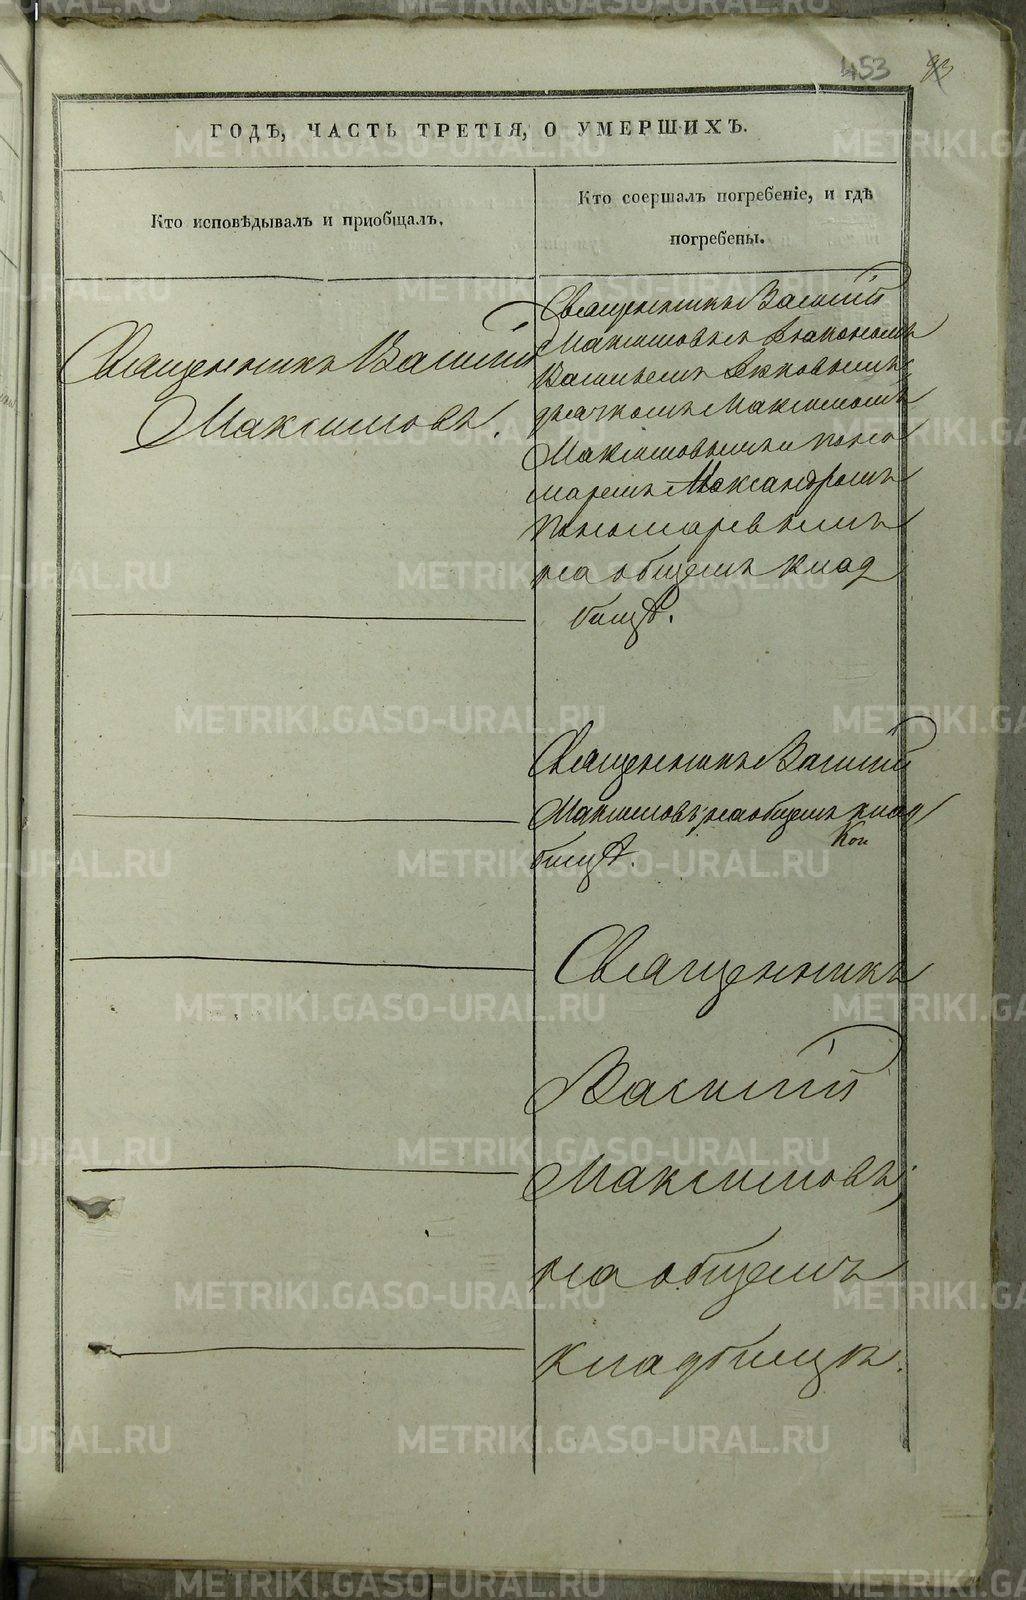 453 93
ГОДЪ, ЧАСТЬ ТРЕТІЯ, О УМЕРШИХЪ.
Кто исповѣдывалъ и приобщалъ.
Кто соершалъ погребеніе, и гдѣ
погребены.
Священникъ Василій
Максимовъ.
Священникъ Василій
Максимовъ съ Діакономъ
Василіемъ
дьячкомъ Максимомъ
Максимовымъ и поно
маремъ Александромъ
Пономаревымъ
на общемъ клад
бищѣ.
Священникъ Василій
Максимовъ, на общемъ клад
бищѣ.
Священникъ
Василій
Максимовъ;
на общемъ
кладбищѣ.
METRIKI.GASO-URAL.RU